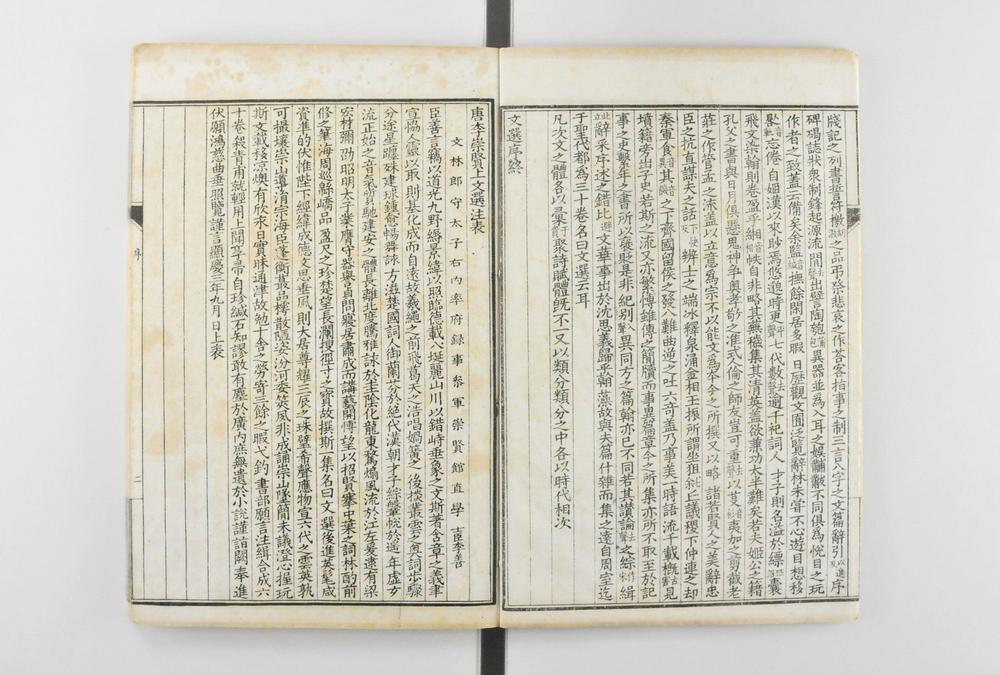 牋記之列書誓符檄之品弔祭悲哀之作荅客指事之制三言八字之文篇辭引序
碑碣誌狀衆制鋒起源流間出譬陶匏異器並爲入耳之娛黼黻不同俱爲悅目之玩
作者之致蓋云備矣余監撫餘閑居多暇日歷觀文囿泛覽辭林未甞不心遊目想移
晷忘倦自姬漢以來眇焉悠邈時更七代數逾千祀詞人才子則名溢於縹囊
飛文染翰則卷盈乎緗帙自非略其蕪穢集其清英蓋欲兼功太半難矣若夫姬公之籍
孔父之書與日月俱懸鬼神爭奧孝敬之准式人倫之師友豈可重以芟夷加之剪截老
莊之作管孟之流蓋以立意爲宗不以能文爲本今之所撰又以略諸若賢人之美辭忠
臣之抗直謀夫之話辨士之端冰釋泉涌金相玉振所謂坐狙丘議稷下仲連之却
秦軍食其之下齊國留侯之發八難曲逆之吐六奇蓋乃事美一時語流千載概見
墳籍旁出子史若斯之流又亦繁博雖傳之簡牘而事異篇章今之所集亦所不取至於記
事之史繫年之書所以襃貶是非紀別異同方之篇翰亦已不同若其讚論之綜緝
辭采序述之錯比文華事出於沈思義歸乎翰藻故與夫篇什雜而集之遠自周室迄
于聖代都爲三十卷名曰文選云耳
凡次文之體各以彙聚詩賦體既不一又以類分類分之中各以時代相次
文選序終
唐李崇賢上文選注表
文林郎守太子右内率府録事參軍崇賢館直學士臣李善
臣善言竊以道光九野縟景緯以照臨德載八埏麗山川以錯峙垂象之文斯著含章之義聿
宣協人靈以取則基化成而自遠故羲繩之前飛葛天之浩唱媧簧之後掞叢雲之奥詞步驟
分途星躔殊建球鍾愈暢舞詠方滋楚國詞人御蘭芬於絶代漢朝才子綜鞶帨於遥年虚玄
流正始之音氣質馳建安之體長離北度騰雅詠於圭陰化龍東騖煽風流於江左爰逮有梁
宏材彌劭昭明太子業膺守器譽貞問寢居肅成而講藝開博望以招賢搴中葉之詞林酌前
修之筆海周巡緜嶠品盈尺之珍楚望長瀾搜徑寸之寶故撰斯一集名曰文選後進英髦咸
資準的伏惟陛下經緯成德文思垂風則大居尊耀三辰之珠璧希聲應物宣六代之雲英孰
可撮壤崇山導涓宗海臣蓬衡蕞品樗散陋姿汾河委筴夙非成誦崇山墜簡未議澄心握玩
斯文載移凉燠有欣永日實昧通津故勉十舍之勞寄三餘之暇弋釣書部願言注緝合成六
十卷殺青甫就輕用上聞享帚自珍緘石知謬敢有塵於廣内庶無遺於小説謹詣闕奉進
伏願鴻慈曲垂照覽謹言顯慶三年九月日上表
序
二